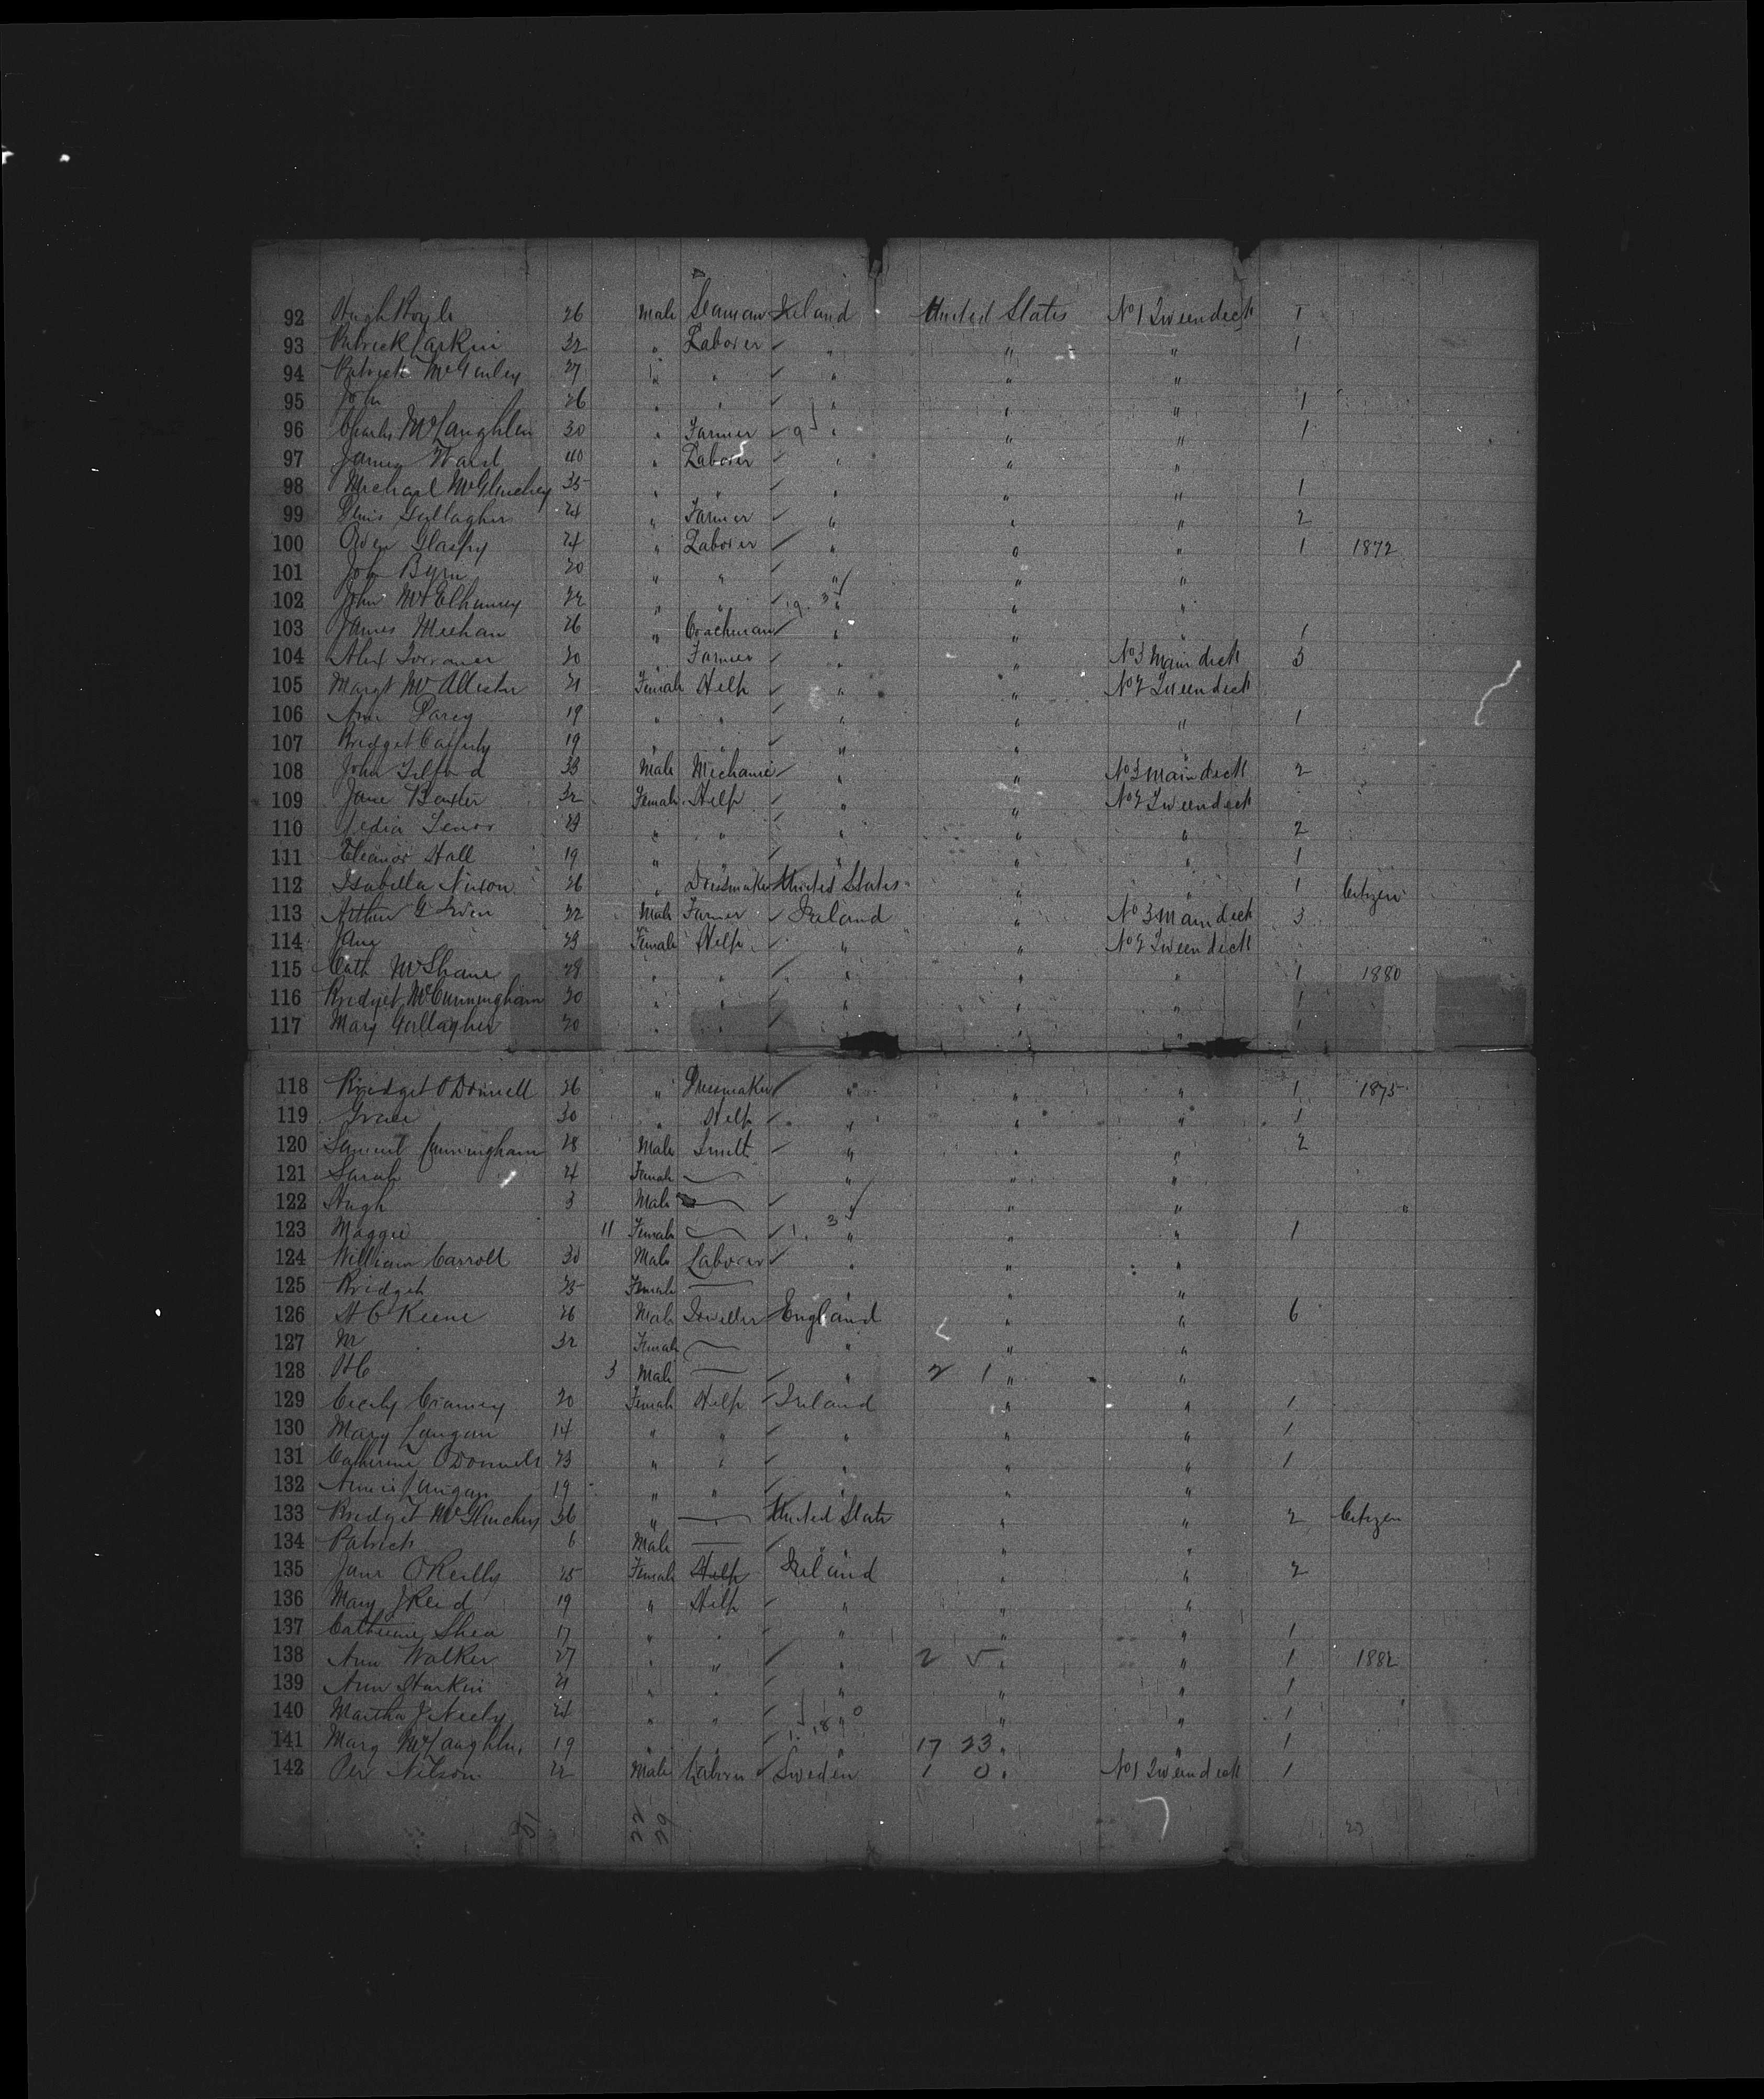 92 Hugh Boyle 26 Male Seaman Ireland United States No 1 Tweendeck 1
93 Patrick Larkin 32 " Laborer " " " 1
94 Patrick McGinley 27 " " " " "
95 John 26 " " " " " 1
96 Charles McLaughlin 30 " Farmer " " " 1
97 James Ward 40 " Laborer " " "
98 Michael McGlinchey 35 " " " " " 1
99 Gallagher 24 " Farmer " " " 2
100 Owen 24 " Laborer " " " 1 1872
101 John Byrn 20 " " " " "
102 John McElhinney 22 " " " " "
103 James Meehan 26 " Coachman " " " 1
104 Alex Torrance 20 Farmer " " No 3 Main deck 3
105 Margt McAllister 21 Female Help " " No 2 Tweendeck
106 Ann 19 " " " " " 1
107 Bridget Cafferty 19 " " " " "
108 John Tilford 33 Male Mechanic " " No 3 Main deck 2
109 Jane Baxter 32 Female Help " " No 2 Tweendeck
110 Lenox " " " " " 2
111 Eleanor Hall 19 " " " " 1
112 Isabella Nixon 26 " Dressmaker United States " " 1 Citizen
113 Arthur G Irvin 32 Male Farmer Ireland " No 3 Main deck 3
114 Jane Female Help " " No 2 Tweendeck
115 Cath McShane 28 " " " " " 1 1880
116 Bridget McCunningham 20 " " " " " 1
117 Mary Gallagher 20 " " " " " 1
118 Bridget O'Donnell 26 " Dressmaker " " " 1 1875
119 Grace 30 " Help " " " 1
120 Samuel Cunningham 28 Male Smith " " " 2
121 Sarah 4 Female " " "
122 Hugh 3 Male " " "
123 Maggie 11 Female " " " 1
124 William Carroll 30 Male Laborer " " "
125 Bridget 25 Female " "
126 H C Keene 26 Male Traveller England " " 6
127 M 32 Female " " "
128 H C 3 Male " 2 1 " "
129 Cecily 20 Female Help Ireland " " 1
130 Mary Langan 14 " " " " " 1
131 Catherine O'Donnell 23 " " " " " 1
132 Annie Langan 19 " " " " "
133 Bridget McGlinchey 36 " United States " " 2 Citizen
134 Patrick 6 Male " " "
135 Jane O'Reilly 25 Female Help Ireland " " 2
136 Mary J Reid 19 " Help " " "
137 Catherine Shea 17 " " " " " 1
138 Ann Walker 27 " " " 2 5 " " 1 1882
139 Ann Harkin 21 " " " " " 1
140 Martha J Neely 24 " " " " " 1
141 Mary McLaughlin 19 " " " 17 23 " " 1
142 Per Nilson 22 Male Laborer Sweden 1 0 " No 1 Tweendeck 1